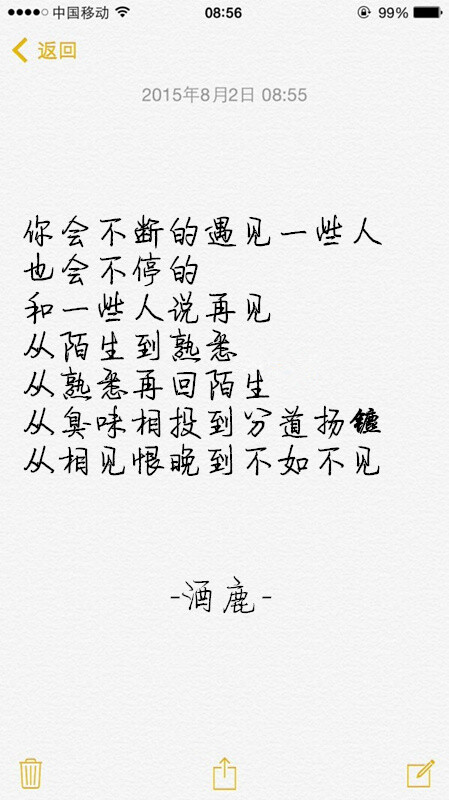 中国移动 08:56 99%
返回
2015年8月2日 08:55
你会不断的遇见一些人
也会不停的
和一些人说再见
从陌生到熟悉
从熟悉再回陌生
从臭味相投到分道扬镳
从相见恨晚到不如不见
-酒鹿-